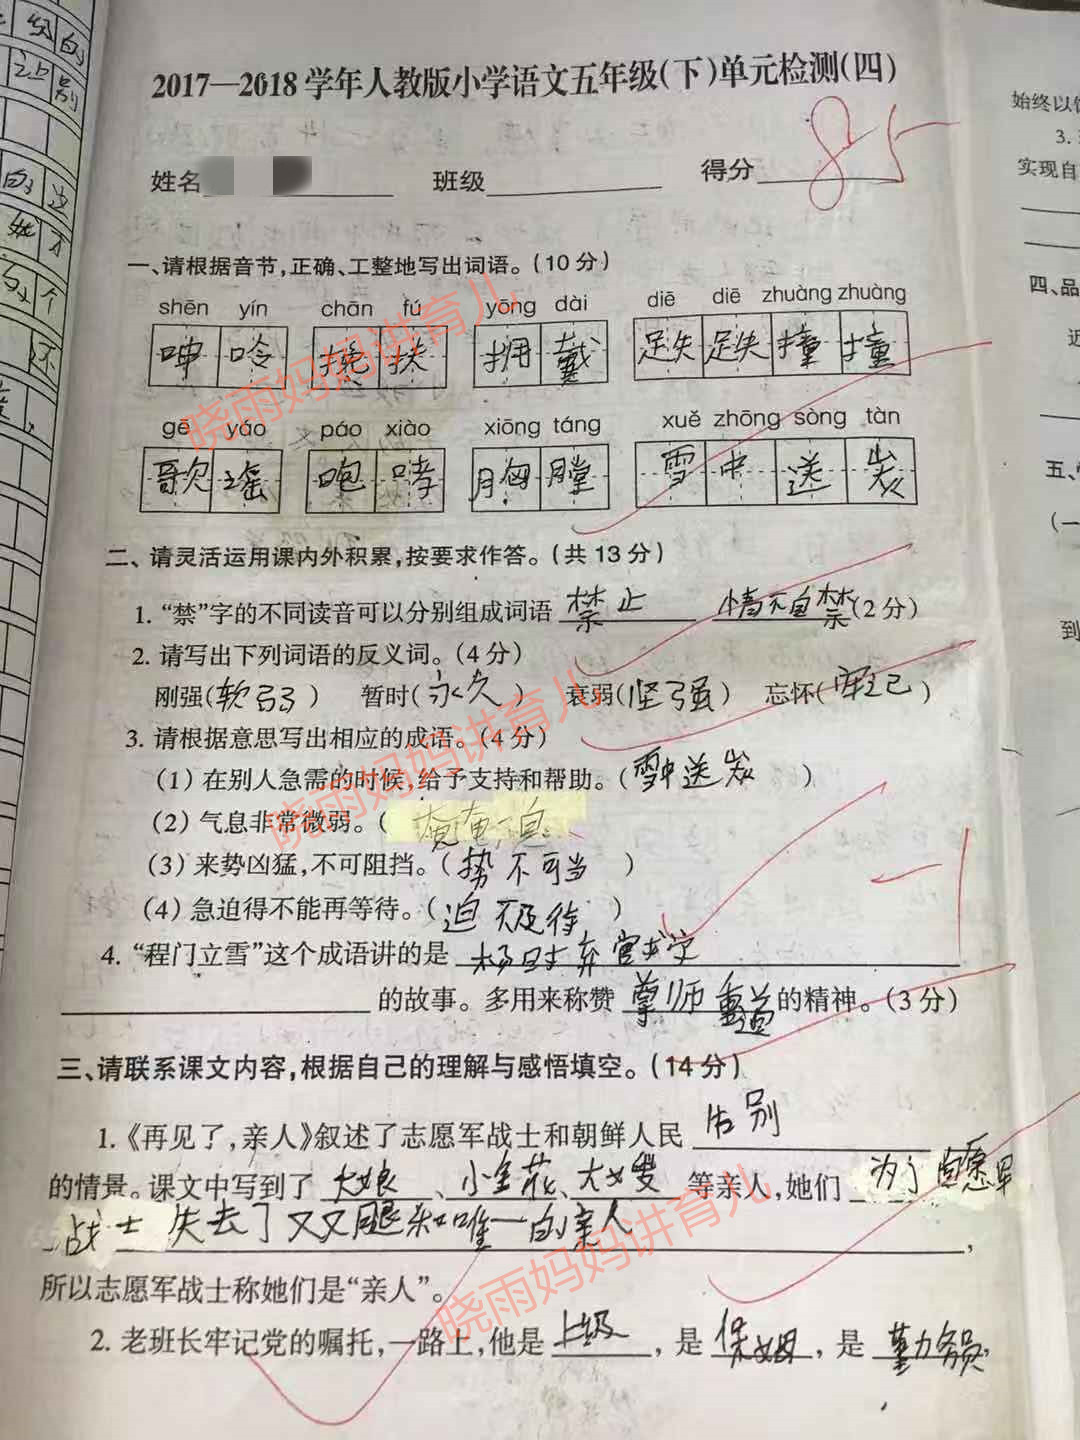 级的
别
的这
个
还
2017—2018学年人教版小学语文五年级(下)单元检测(四)
姓名 班级 得分 85
一、请根据音节,正确、工整地写出词语。(10分)
shēn yín chān fú yōng dài diē diē zhuàng zhuàng
呻吟 搀扶 拥戴 跌跌撞撞
gē yáo páo xiào xiōng táng xuě zhōng sòng tàn
歌谣 咆哮 胸膛 雪中送炭
二、请灵活运用课内外积累,按要求作答。(共13分)
1. “禁”字的不同读音可以分别组成词语 禁止 情不自禁(2分)
2. 请写出下列词语的反义词。(4分)
刚强(软弱) 暂时(永久) 衰弱(坚强) 忘怀(牢记)
3. 请根据意思写出相应的成语。(4分)
(1) 在别人急需的时候,给予支持和帮助。(雪中送炭)
(2) 气息非常微弱。(奄奄一息
(3) 来势凶猛,不可阻挡。(势不可当)
(4) 急迫得不能再等待。(迫不及待)
-1
4. “程门立雪”这个成语讲的是 杨时弃官求学
的故事。多用来称赞 尊师重道 的精神。(3分)
三、请联系课文内容,根据自己的理解与感悟填空。(14分)
1.《再见了,亲人》叙述了志愿军战士和朝鲜人民 告别
的情景。课文中写到了 大娘、小金花、大嫂 等亲人,她们 为了志愿军
战士失去了双腿和唯一的亲人,
所以志愿军战士称她们是“亲人”。
2. 老班长牢记党的嘱托,一路上,他是 上级,是 保姆,是 勤务员,
始终以饮
3.
实现自
四、品
近
五、
(一
到
晓雨妈妈讲育儿
晓雨妈妈讲育儿
晓雨妈妈讲育儿